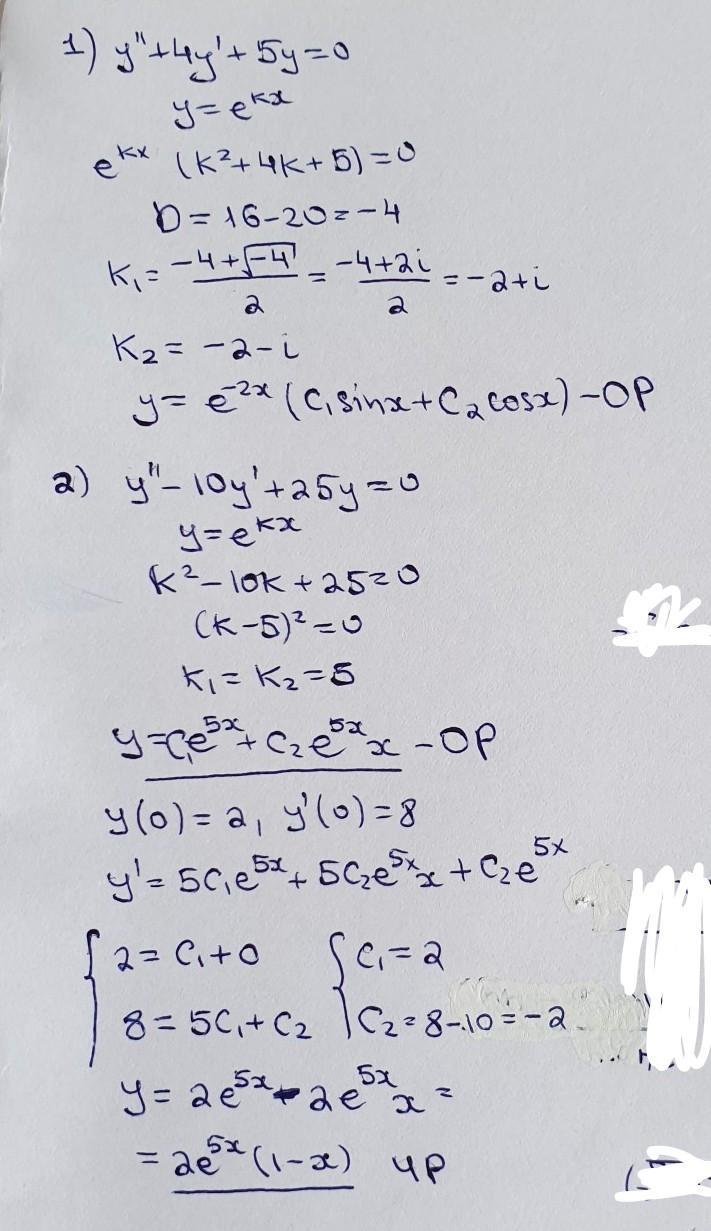 1) y"+4y'+5y=0
y=e^kx
e^kx (k²+4k+5)=0
D=16-20=-4
K₁=(-4+√-4)/2=(-4+2i)/2=-2+i
K₂=-2-i
y=e^-2x(C₁sinx+C₂cosx)-OP
2) y"-10y'+25y=0
y=e^kx
k²-10k+25=0
(k-5)²=0
K₁=K₂=5
y=C₁e^5x+C₂e^5x x-OP
y(0)=2, y'(0)=8
y'=5C₁e^5x+5C₂e^5x x+C₂e^5x
{2=C₁+0 {C₁=2
8=5C₁+C₂ C₂=8-10=-2
y=2e^5x-2e^5x x=
=2e^5x(1-x) ЧР